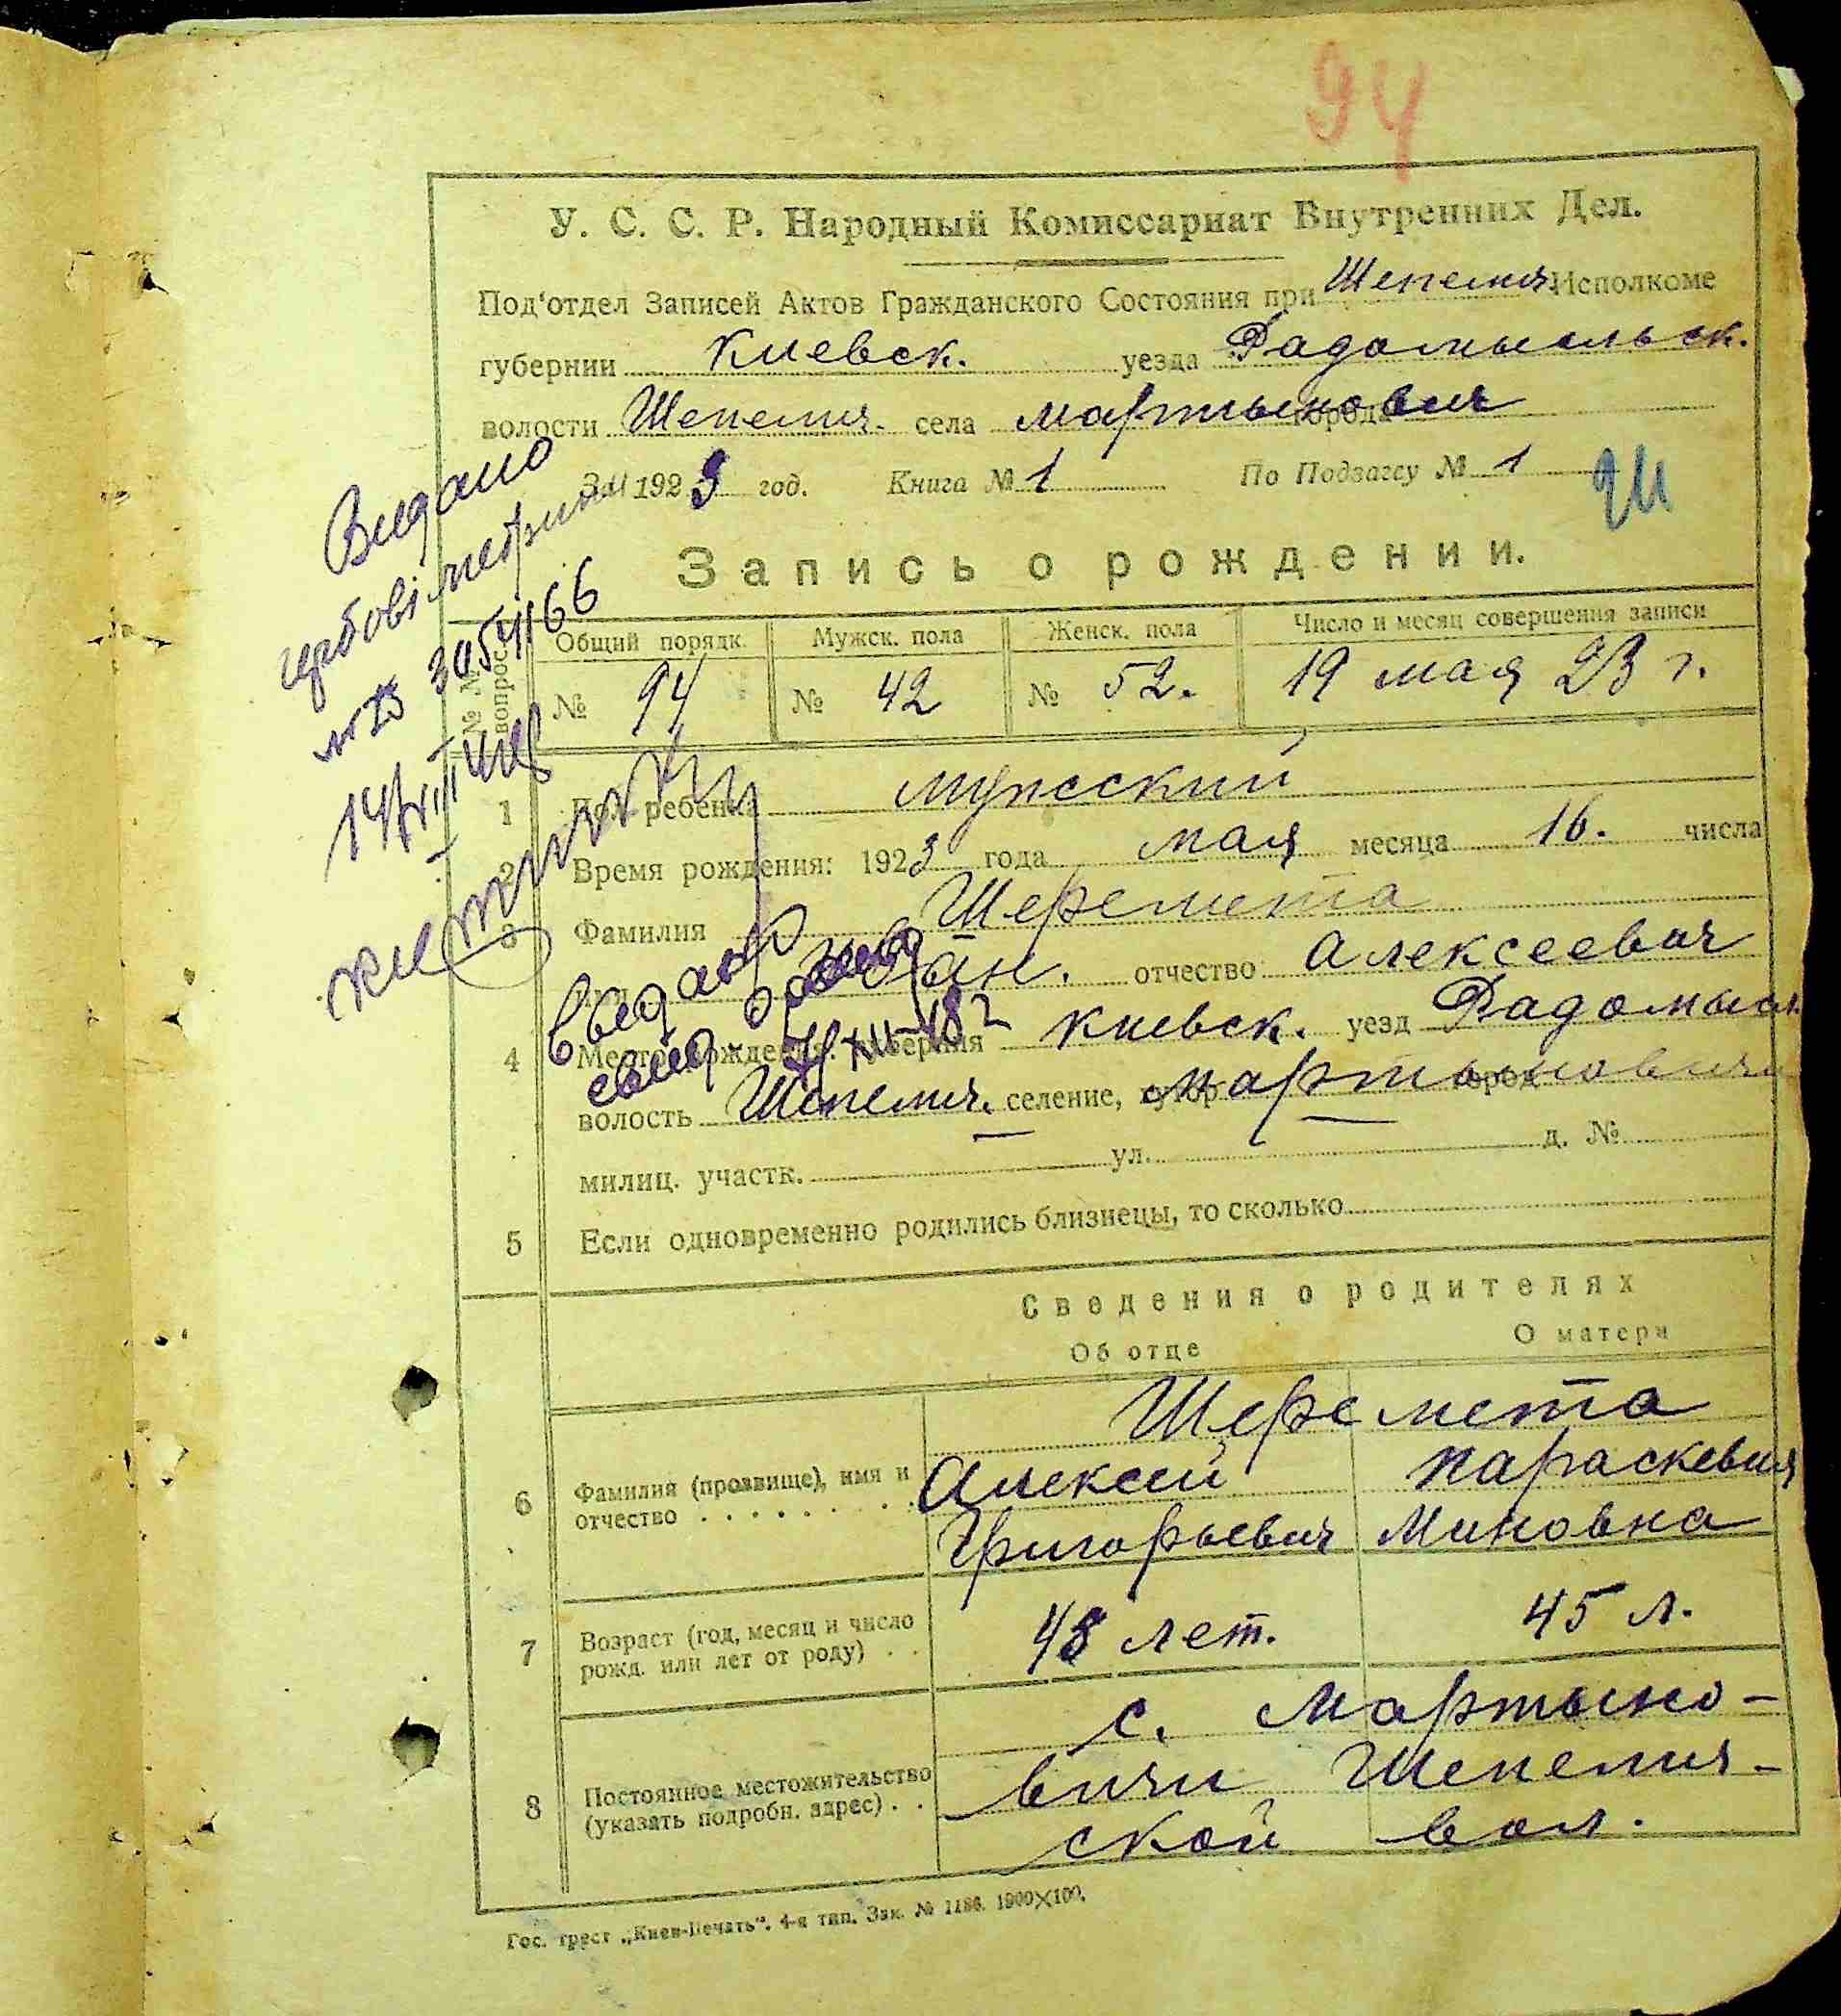 94
У. С. С. Р. Народный Комиссариат Внутренних Дел.
Под'отдел Записей Актов Гражданского Состояния при Шепелич. Исполкоме
губернии Киевск. уезда Радомысльск.
волости Шепелич. села Мартынович города
За 1923 год. Книга № 1 По Подзагсу № 1
Запись о рождении.
№ № вопрос. Общий порядк. Мужск. пола Женск. пола Число и месяц совершения записи
№ 94 № 42 № 52. 19 мая 23 г.
Видано
1 Пол ребенка мужский
2 Время рождения: 1923 года мая месяца 16. числа
3 Фамилия Шеремета
Иван. отчество Алексеевич
4 Место рождения: губерния Киевск. уезд Радомысл.
волость Шепелич. селение, хутор Мартыновичи город
милиц. участк. ул. д. №
5 Если одновременно родились близнецы, то сколько
Сведения о родителях
Об отце О матери
Шеремета
6 Фамилия (прозвище), имя и отчество Алексей Параскевия
Григорьевич Миновна
7 Возраст (год, месяц и число рожд. или лет от роду) 48 лет. 45 л.
с. Мартыно-
8 Постоянное местожительство (указать подробн. адрес) вичи Шепелич-
ской вол.
Гос. трест „Киев-Печать". 4-я тип. Зак. № 1186. 1900×100.